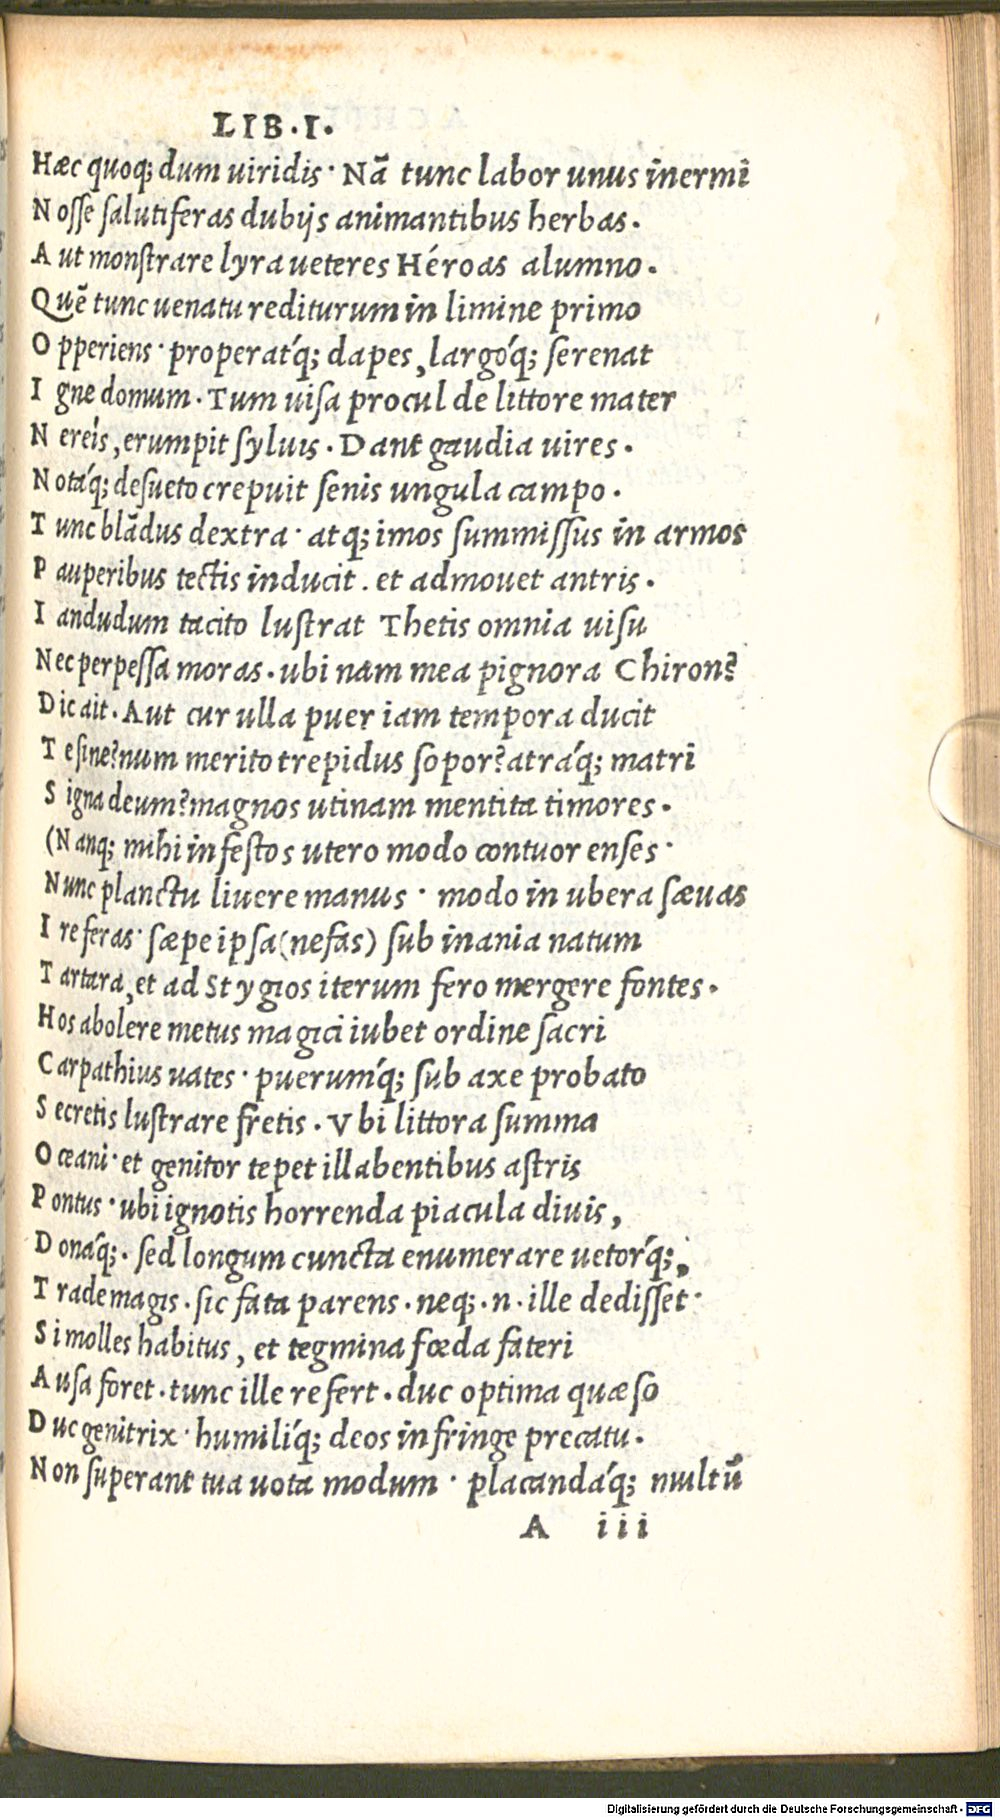 LIB.I.
Hæc quoq; dum uiridis· Nā tunc labor unus inermi
Nosse salutiferas dubijs animantibus herbas.
Aut monstrare lyra ueteres Héroas alumno.
Quē tunc uenatu rediturum in limine primo
Opperiens· properat́q; dapes, largóq́; serenat
Igne domum. Tum uisa procul de littore mater
Nereís, erumpit syluis. Dant gaudia uires.
Notáq́; desueto crepuit senis ungula campo.
Tunc blādus dextra· atq; imos summissus in armos
Pauperibus tectis inducit. et admouet antris.
Iandudum tacito lustrat Thetis omnia uisu
Nec perpessa moras. ubi nam mea pignora Chiron?
Dic ait. Aut cur ulla puer iam tempora ducit
Te sine? num merito trepidus sopor? atráq́; matri
Signa deum? magnos utinam mentita timores.
(Nanq; mihi infestos utero modo contuor enses·
Nunc planctu liuere manus· modo in ubera sæuas
Ire feras· sæpe ipsa (nefas) sub inania natum
Tartara, et ad Stygios iterum fero mergere fontes.
Hos abolere metus magici iubet ordine sacri
Carpathius uates· puerumq́; sub axe probato
Secretis lustrare fretis. Vbi littora summa
Oceani· et genitor tepet illabentibus astris
Pontus· ubi ignotis horrenda piacula diuis,
Donáq́;. sed longum cuncta enumerare uetorq́;,
Trade magis. sic fata parens. neq;. n. ille dedisset·
Si molles habitus, et tegmina fœda fateri
Ausa foret. tunc ille refert. duc optima quæso
Duc genitrix· humiliq́; deos infringe precatu.
Non superant tua uota modum· placandáq́; multū
A iii
Digitalisierung gefördert durch die Deutsche Forschungsgemeinschaft - DFG